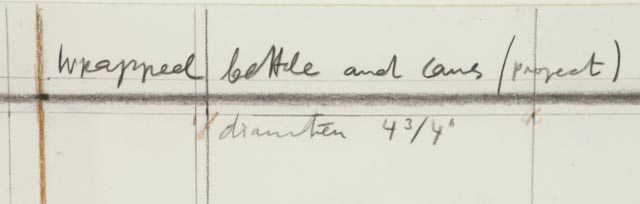 Wrapped bottle and cans (project)
diameter 4 3/4"